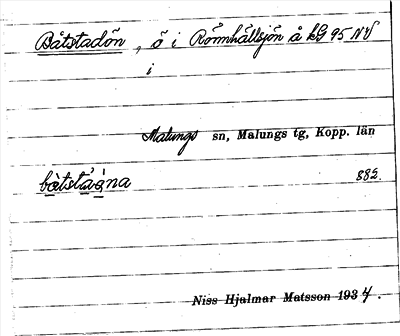 Båtstadön, ö i Römhållsjön å kG 95 NV
i
Malungs sn, Malungs tg, Kopp. län
båtstàọ̀na 882.
Niss Hjalmar Matsson 1934.